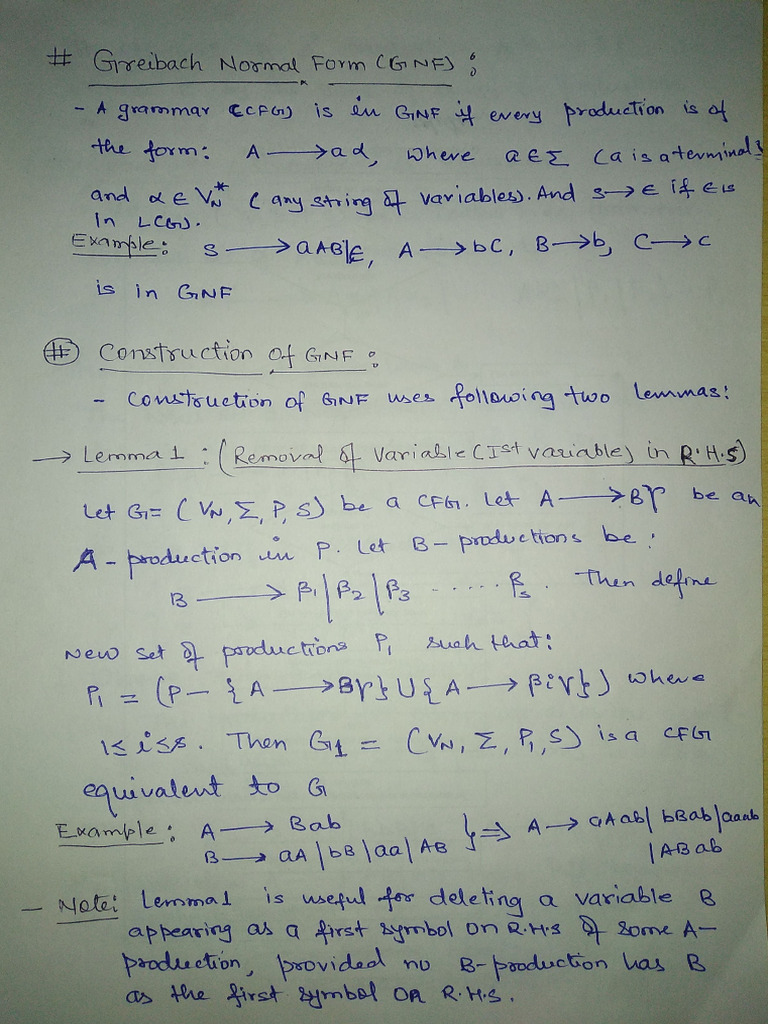 # Greibach Normal Form (GNF) :
- A grammar (CFG) is in GNF if every production is of
the form: A ⟶ aα, where a ∈ Σ (a is a terminal)
and α ∈ V_N^* (any string of variables). And S → ∈ if ∈ is
in L(G).
Example: S ⟶ aAB|∈, A ⟶ bC, B ⟶ b, C ⟶ c
is in GNF
# Construction of GNF :
- Construction of GNF uses following two lemmas:
→ Lemma 1 : (Removal of Variable (Ist variable) in R.H.S)
Let G = (V_N, Σ, P, S) be a CFG. Let A ⟶ Bγ be an
A-production in P. Let B-productions be:
B ⟶ β1 | β2 | β3 ...... βs. Then define
New set of productions P1 such that:
P1 = (P - {A ⟶ Bγ} ∪ {A ⟶ βiγ}) where
1≤ i ≤s. Then G1 = (V_N, Σ, P1, S) is a CFG
equivalent to G
Example : A ⟶ Bab
B ⟶ aA | bB | aa | AB } ⇒ A → aAab | bBab | aaab
| ABab
- Note: Lemma 1 is useful for deleting a variable B
appearing as a first symbol on R.H.S of some A-
production, provided no B-production has B
as the first symbol on R.H.S.